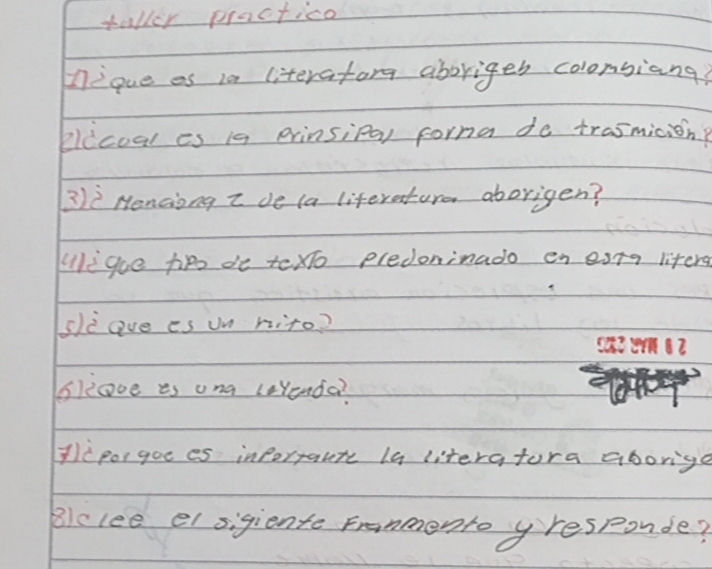 taller practico
1)¿que es la literatura aborigen colombiana?
2)¿cual es la prinsipal forma de trasmición?
3)¿ Menciona 2 de la literatura aborigen?
4)¿que tipo de texto predoninado en esta litera
5)¿que es un mito?
28 MAR
6)¿que es una leyenda?
7)¿por que es inportante la literatura aborige
8)¿lee el sigiente Franmento y responde?